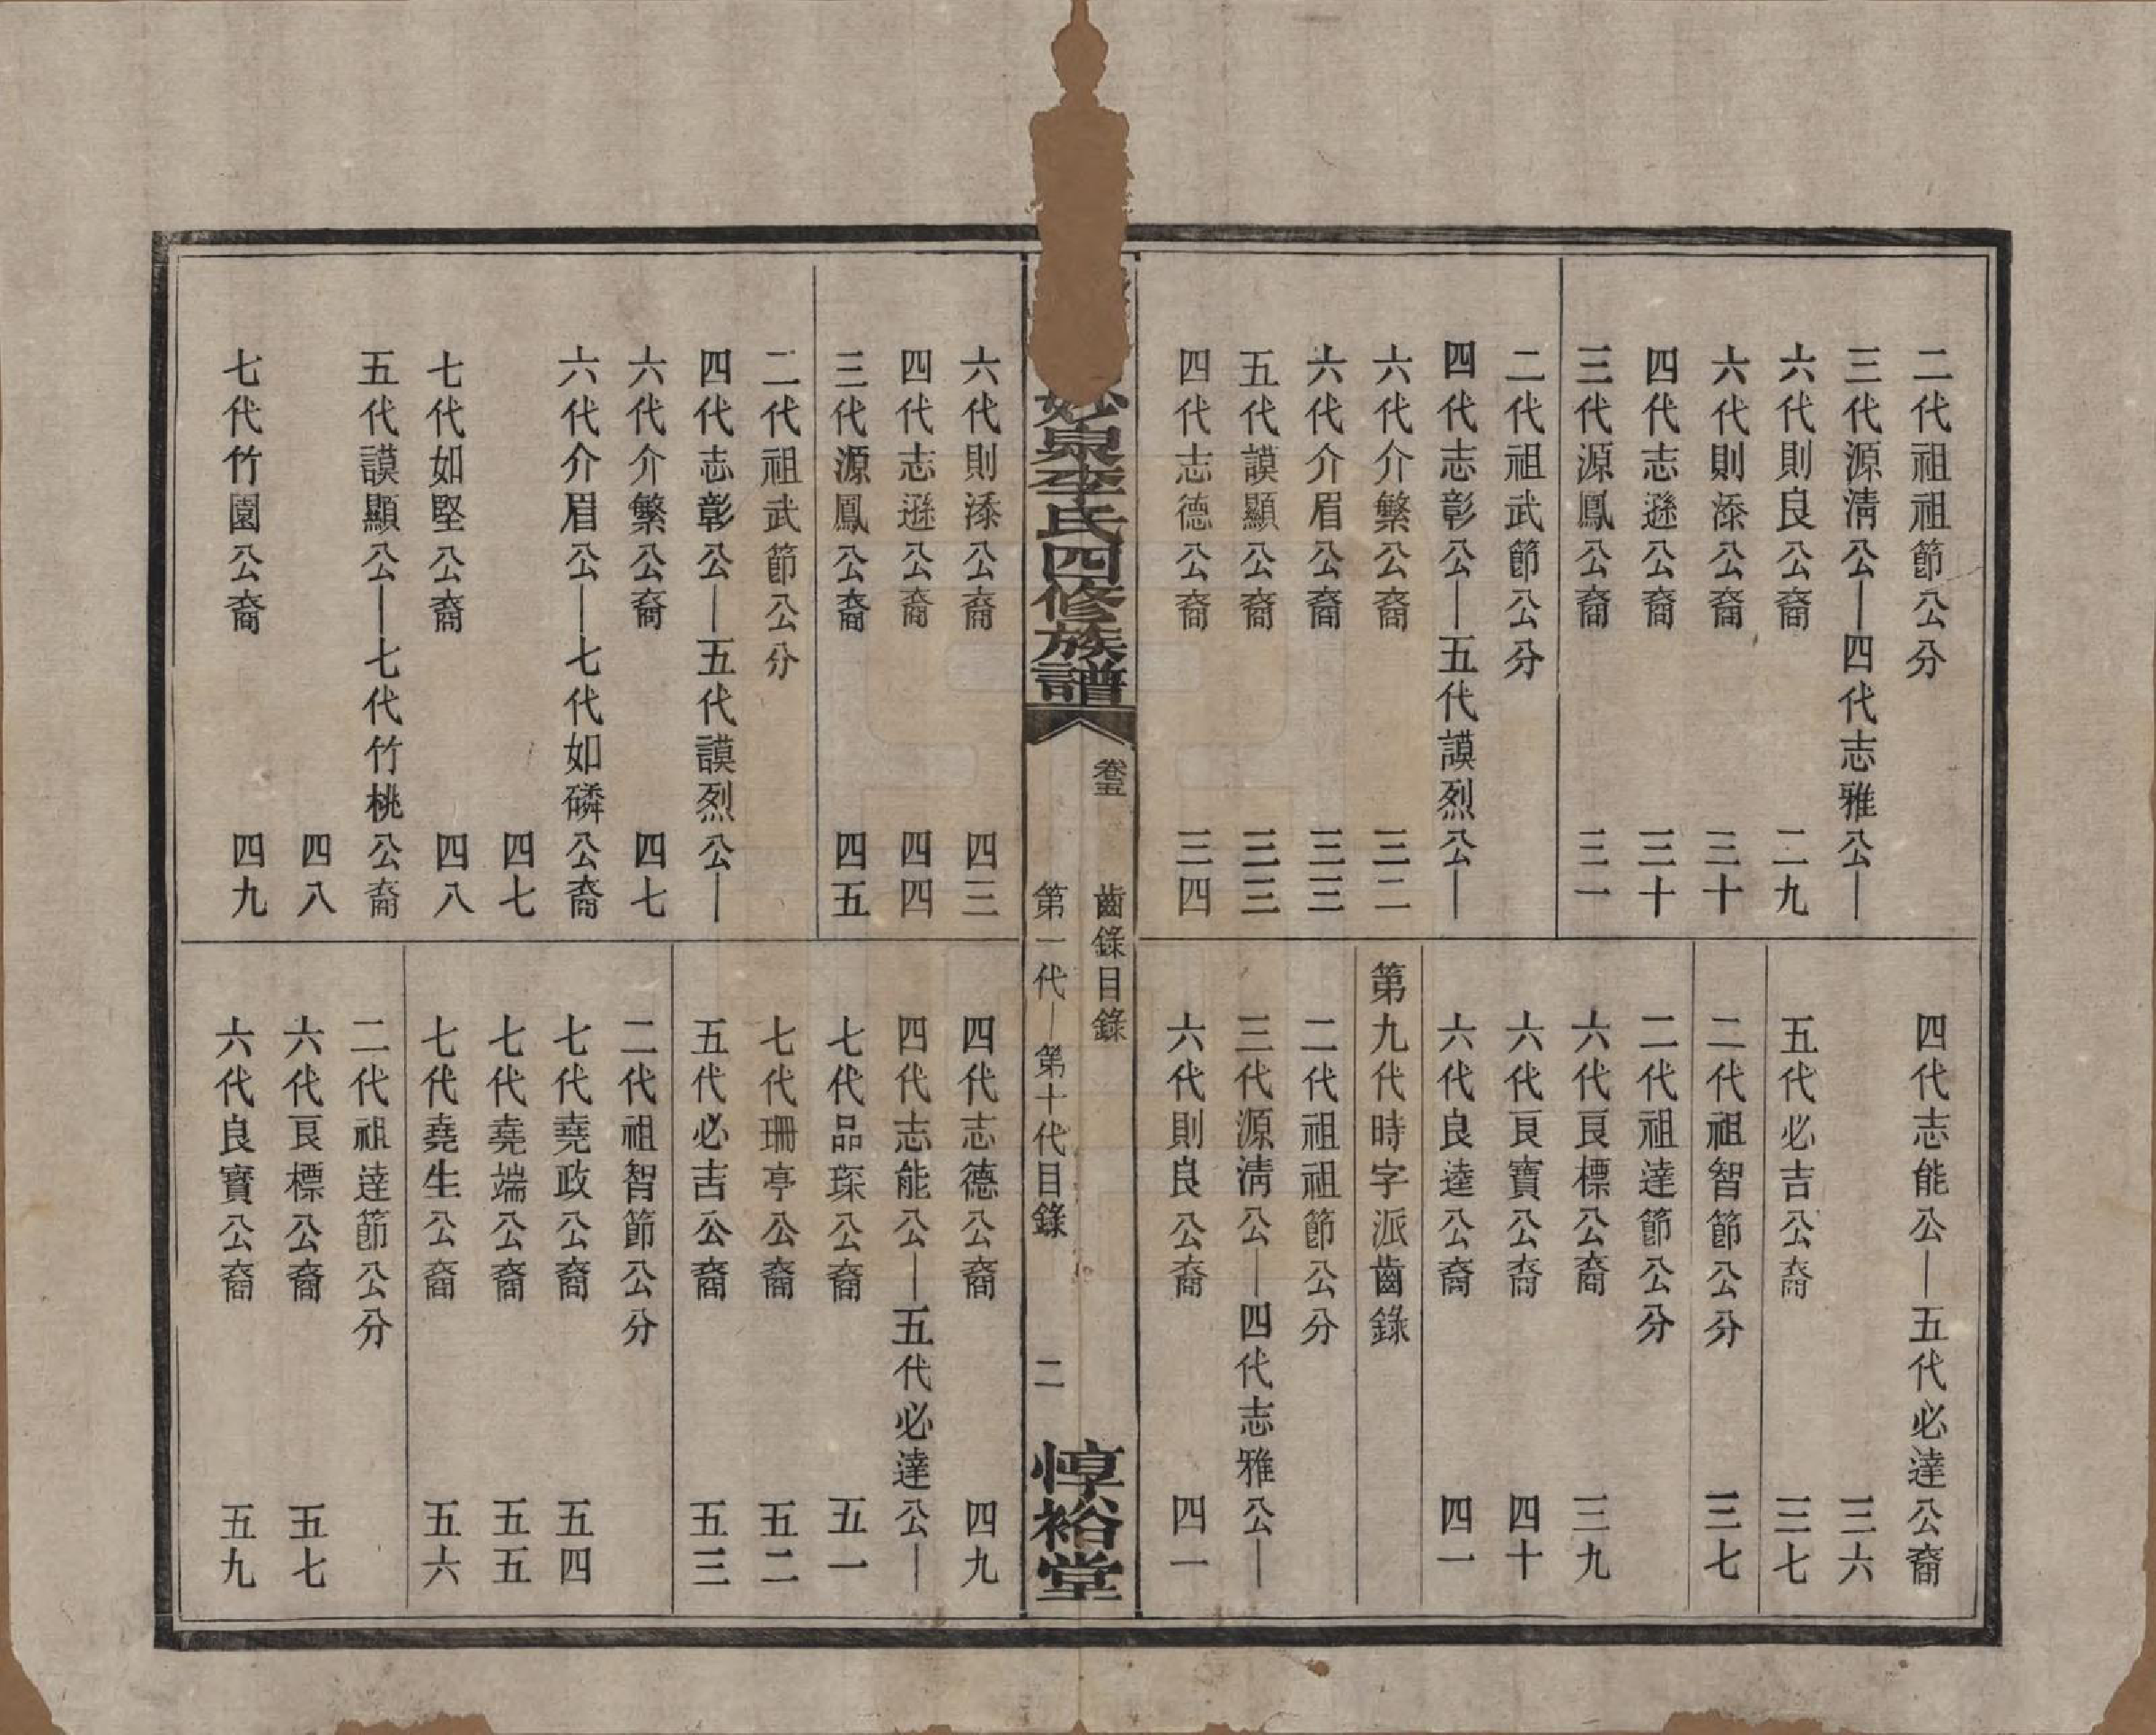 二代祖祖節公分
三代源清公—四代志雅公—
六代則良公裔 二九
六代則添公裔 三十
四代志遜公裔 三十
三代源鳳公裔 三一
二代祖武節公分
四代志彰公—五代謨烈公—
六代介繁公裔 三二
六代介眉公裔 三三
五代謨顯公裔 三三
四代志德公裔 三四
四代志能公—五代必達公裔
三六
五代必吉公裔 三七
二代祖智節公分 三七
二代祖達節公分
六代良標公裔 三九
六代良寶公裔 四十
六代良達公裔 四一
第九代時字派齒錄
二代祖祖節公分
三代源清公—四代志雅公—
六代則良公裔 四一
妙泉李氏四修族譜
卷五 齒錄目錄
第一代—第十代目錄 二
惇裕堂
六代則添公裔 四三
四代志遜公裔 四四
三代源鳳公裔 四五
二代祖武節公分
四代志彰公—五代謨烈公—
六代介繁公裔 四七
六代介眉公—七代如磷公裔
四七
七代如堅公裔 四八
五代謨顯公—七代竹桃公裔
四八
七代竹園公裔 四九
四代志德公裔 四九
四代志能公—五代必達公—
七代品琛公裔 五一
七代珊亭公裔 五二
五代必吉公裔 五三
二代祖智節公分
七代堯政公裔 五四
七代堯端公裔 五五
七代堯生公裔 五六
二代祖達節公分
六代良標公裔 五七
六代良寶公裔 五九